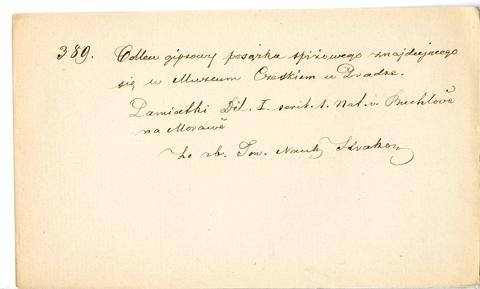 389. Odlew gipsowy posążka spiżowego znajdującego
się w Muzeum Czeskiem w Pradze.
Pamiatki Dil. I. serit. 1. Nal. v. Buchlově
na Moravě
Ze zb. Tow. Nauk. Krakow